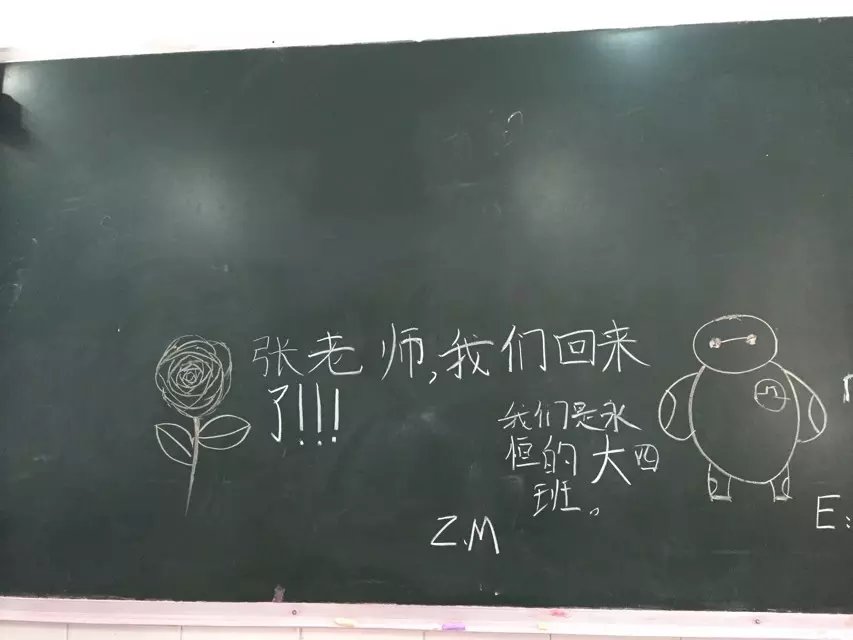 张老师,我们回来
了!!!
我们是永
恒的大四
班。
Z.M
E: